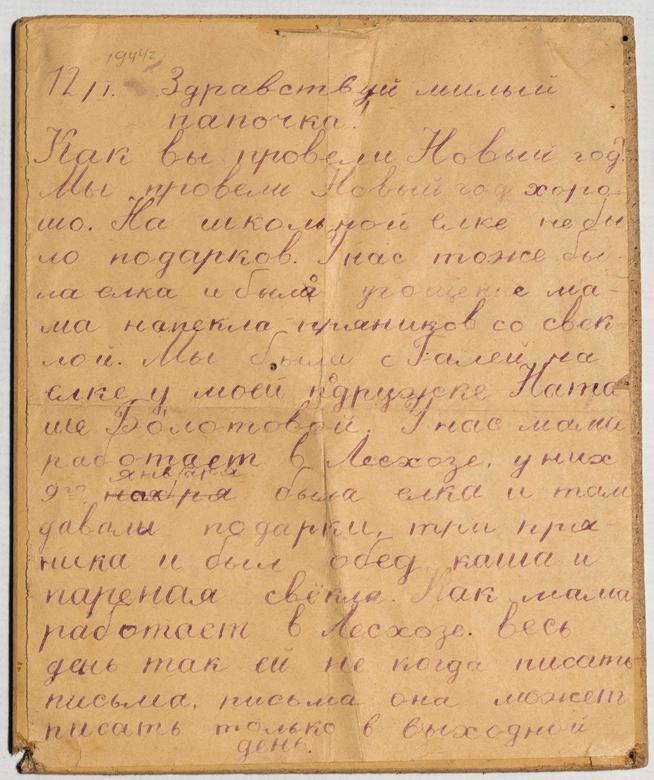 1944г.
12/I. Здравствуй милый
папочка!
Как вы провели Новый год?
Мы провели Новый год хоро-
шо. На школьной елке не бы
ло подарков. У нас тоже бы-
ла елка и было угощение ма-
ма напекла пряников со свек
лой. Мы были с Галей на
елке у моей подружке Ната
ше Болотовой. У нас мама
работает в Лесхозе, у них
января
9го была елка и там
давали подарки, три пря-
ника и был обед каша и
пареная свёкла. Как мама
работает в Лесхозе. весь
день так ей не когда писать
письма, письма она может
писать только в выходной
день.